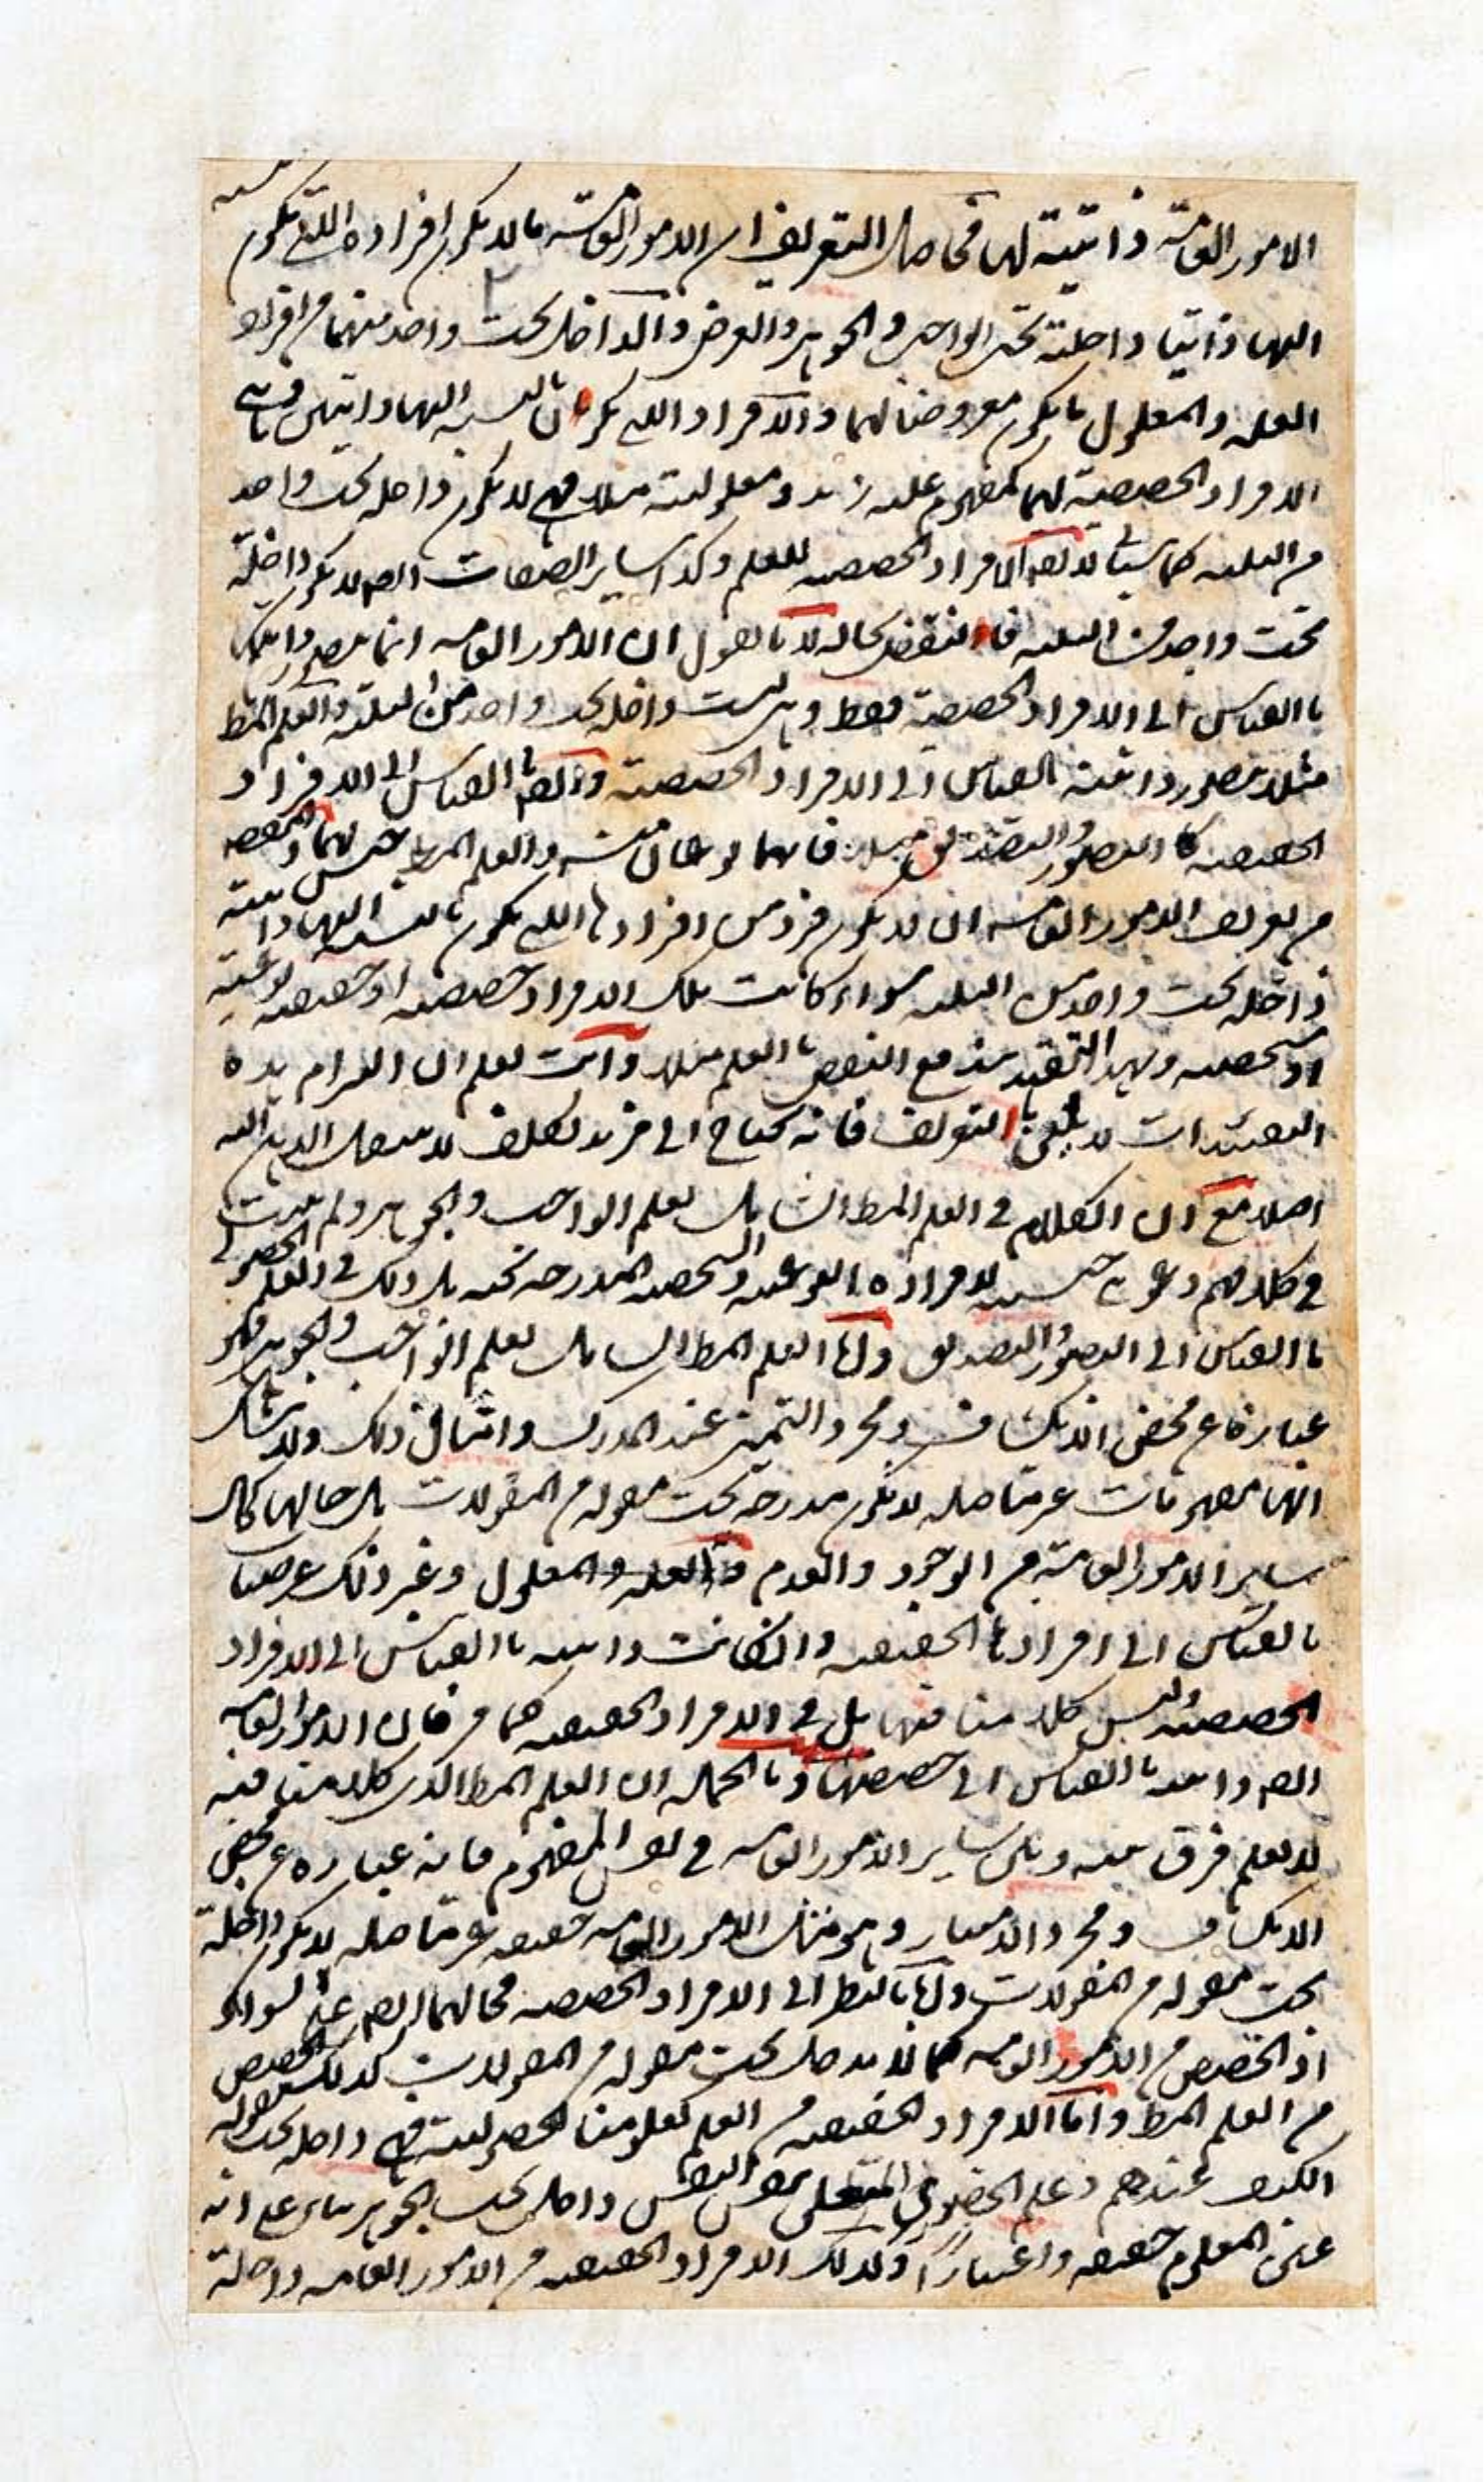 الامور العامة ذاتية لها فحاصل التعريف ان الامور العامة ما لا يكون افراده التي يكون
اليها ذاتيا داخلة تحت الواجب والجوهر والعرض والداخل تحت واحد منهما من افراد
العلة والمعلول ما يكون معروضا لهما والافراد التي يكونان بالنسبة اليهما ذاتيين وهي
الافراد الحصصية لهما كمفهوم علية زيد ومعلولية مثلا فهي لا يكون داخلة تحت واحد
من الثلثة كما سيأتي لا يقال الافراد الحصصية للعلم وكذا ساير الصفات ايضا لا يكون داخلة
تحت واحد من الثلثة فالنقض بحاله لانا نقول ان الامور العامة انما يتصور ذاتيتها
بالقياس الى الافراد الحصصية فقط وهي ليست داخلة تحت واحد من الثلثة والعلم المط
مثلا يتصور ذاتيته بالقياس الى الافراد الحصصية وايضا بالقياس الى الافراد
الحقيقية كالتصور والتصديق مثلا فانهما نوعان منه والعلم المط جنس لهما والمقصود
من تعريف الامور العامة ان لا يكون فرد من افرادها التي يكون بالنسبة اليها ذاتية
داخلة تحت واحد من الثلثة سواء كانت تلك الافراد حصصية او حقيقية نوعية
او شخصية وبهذا التقييد يندفع النقض بالعلم مثلا وانت تعلم ان التزام هذه
التقييدات لا يليق بالتعريف فانه يحتاج الى مزيد تكلف لا ينتقل الذهن اليه
اصلا مع ان الكلام في العلم المط الشامل لعلم الواجب والجوهر ولم يثبت
في كلامهم دعوى جنسيته لافراده النوعية والشخصية المندرجة تحته بل ذلك في العلم الحصولي
بالقياس الى التصور والتصديق واما العلم المط الشامل لعلم الواجب والجوهر فهو
عبارة عن محض الانكشاف ومجرد التميز عند المدرك وامثال ذلك ولا شك
انها مفهومات غير متاصلة لا يكون مندرجة تحت مقولة من المقولات بل حالها كحال
ساير الامور العامة من الوجود والعدم والعلة والمعلول وغير ذلك عرضيا
بالقياس الى افرادها الحقيقية وان كانت ذاتية بالقياس الى الافراد
الحصصية وليس كلامنا فيها بل في الافراد الحقيقية كما مر فان الامور العامة
ايضا ذاتية بالقياس الى حصصها وبالجملة ان العلم المط الذي كلامنا فيه
لا يعلم فرق بينه وبين ساير الامور العامة في نفس المفهوم فانه عبارة عن محض
الانكشاف ومجرد الامتياز وهو مثل الامور العامة حقيقة غير متاصلة لا يكون داخلة
تحت مقولة من المقولات واما بالنظر الى الافراد الحصصية فحالهما ايضا على السواء
اذ الحصص من الامور العامة كما لا يدخل تحت مقولة من المقولات كذلك الحصص
من العلم المط واما الافراد الحقيقية من العلم كعلومنا الحصولية فهي داخلة تحت مقولة
الكيف عندهم وعلم الحضوري المتعلق بنفس النفس داخل تحت الجوهر بناء على انه
عين المعلوم حقيقة واعتبارا وكذلك الافراد الحقيقية من الامور العامة داخلة